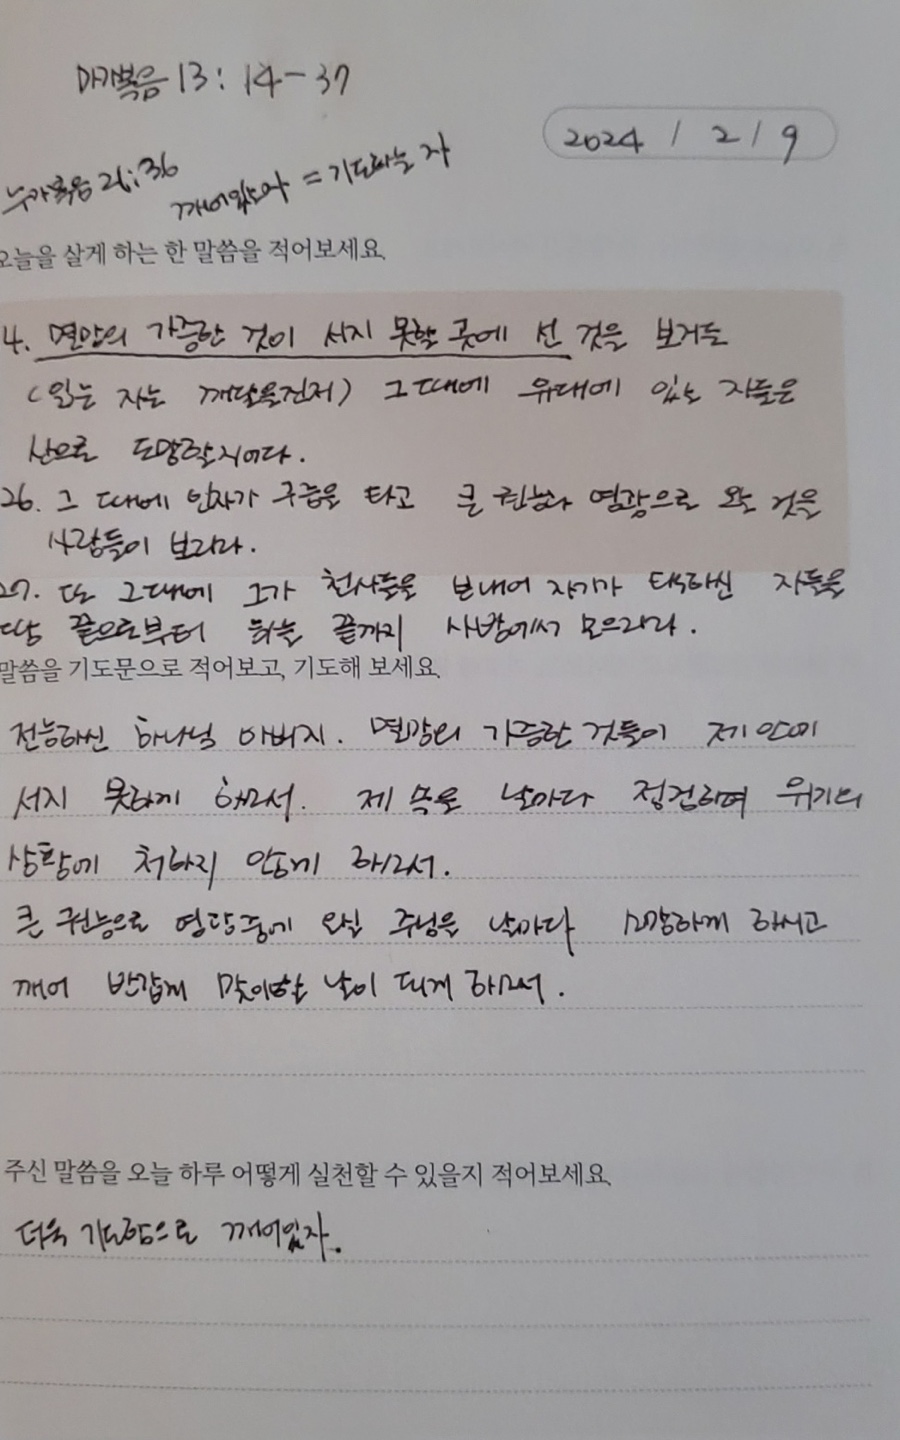 마가복음 13: 14-37
2024 / 2 / 9
누가복음 21:36
깨어있는자 = 기도하는 자
오늘을 살게 하는 한 말씀을 적어보세요.
4. 멸망의 가증한 것이 서지 못할 곳에 선 것을 보거든
(읽는 자는 깨달을진저) 그 때에 유대에 있는 자들은
산으로 도망할지어다.
26. 그 때에 인자가 구름을 타고 큰 권능과 영광으로 오는 것을
사람들이 보리라.
27. 또 그 때에 그가 천사들을 보내어 자기가 택하신 자들을
땅 끝으로부터 하늘 끝까지 사방에서 모으리라.
말씀을 기도문으로 적어보고, 기도해 보세요.
전능하신 하나님 아버지. 멸망의 가증한 것들이 제 안에
서지 못하게 하소서. 제 속을 날마다 점검하며 위기의
상황에 처하지 않게 하소서.
큰 권능으로 영광중에 오실 주님을 날마다 소망하게 하시고
깨어 반갑게 맞이하는 날이 되게 하소서.
주신 말씀을 오늘 하루 어떻게 실천할 수 있을지 적어보세요.
더욱 기도함으로 깨어있자.